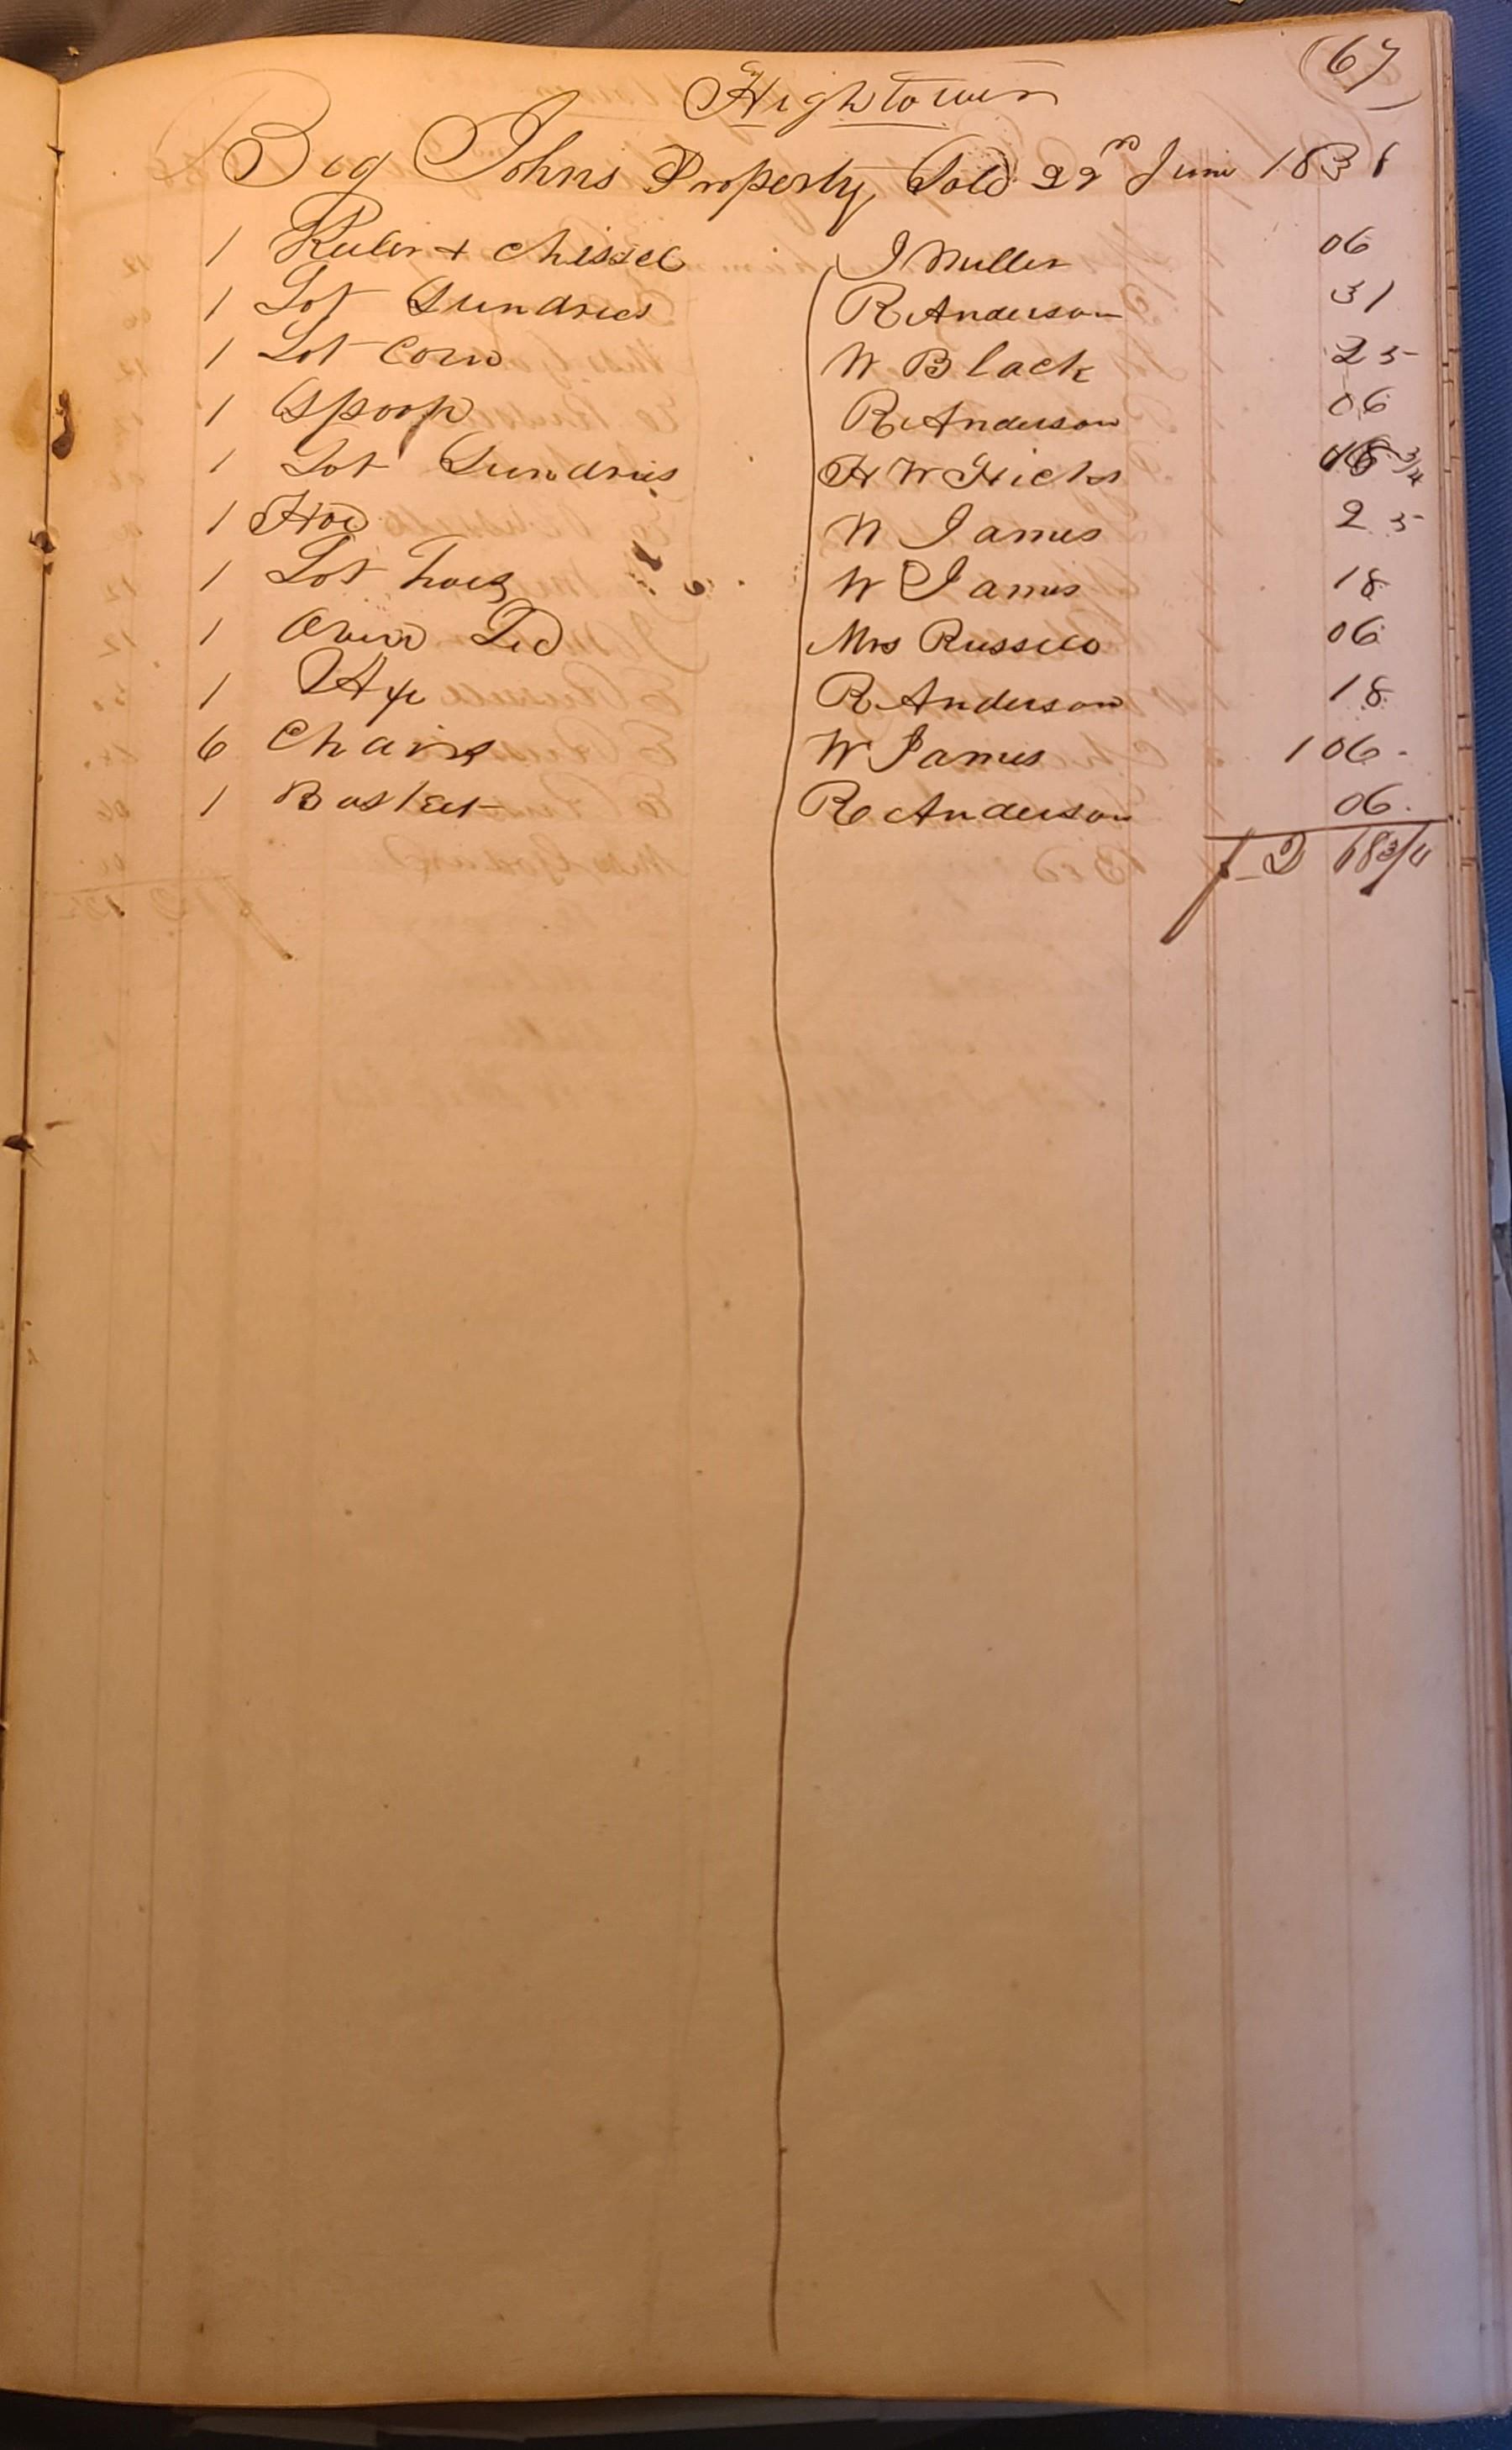 (67)
Hightower
Big Johns Property Sold 22n June 1838
1 Ruler + Chissel J Miller 06
1 Lot Sundries R Anderson 31
1 Lot Corn W Black 25
1 Spoon R Anderson 06
1 Lot Sundries H W Hicks 18 3/4
1 Hoe W James 25
1 Lot hoes W James 18
1 Oven Led Mrs Russell 06
1 Ax R Anderson 18
6 Chairs W James 1 06
1 Basket R Anderson 06
$ 2 68 3/4